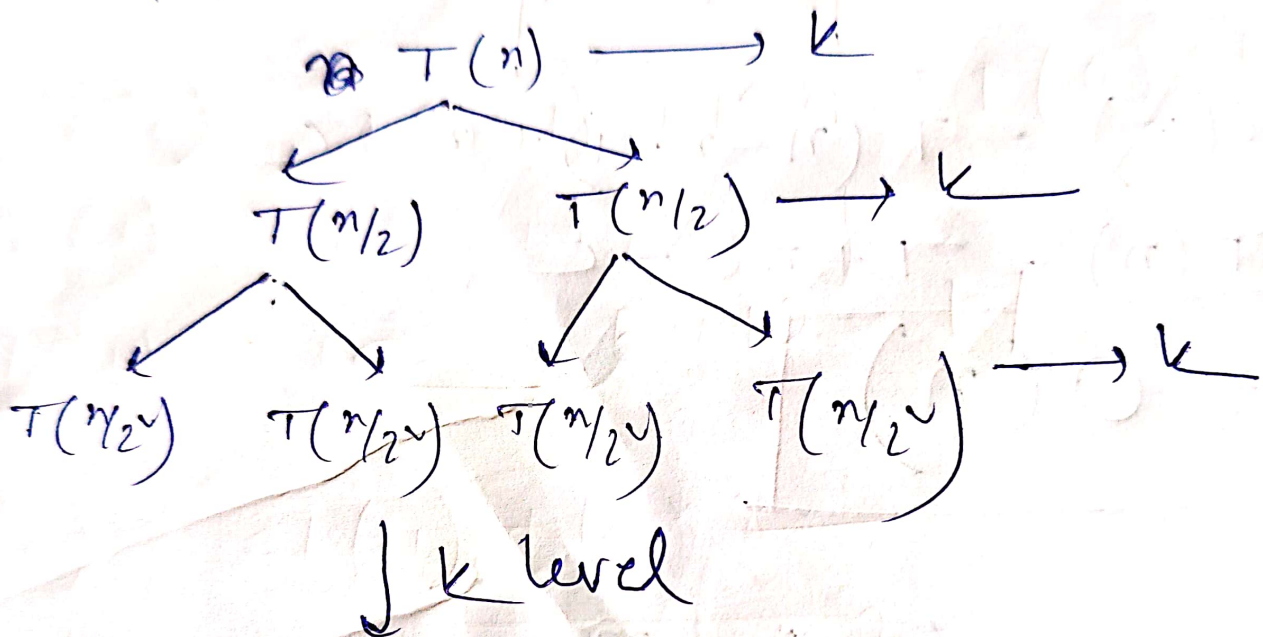 T(n) → k
T(n/2) T(n/2) → k
T(n/2²) T(n/2²) T(n/2²) T(n/2²) → k
↓ k level